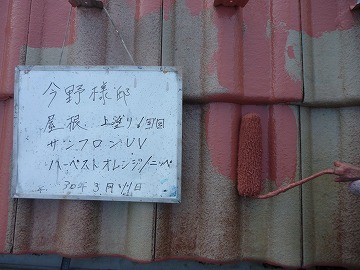 今野様邸
屋根 上塗り1回目
サンフロンUV
ハーベストオレンジ/ニッペ
30年3月 日